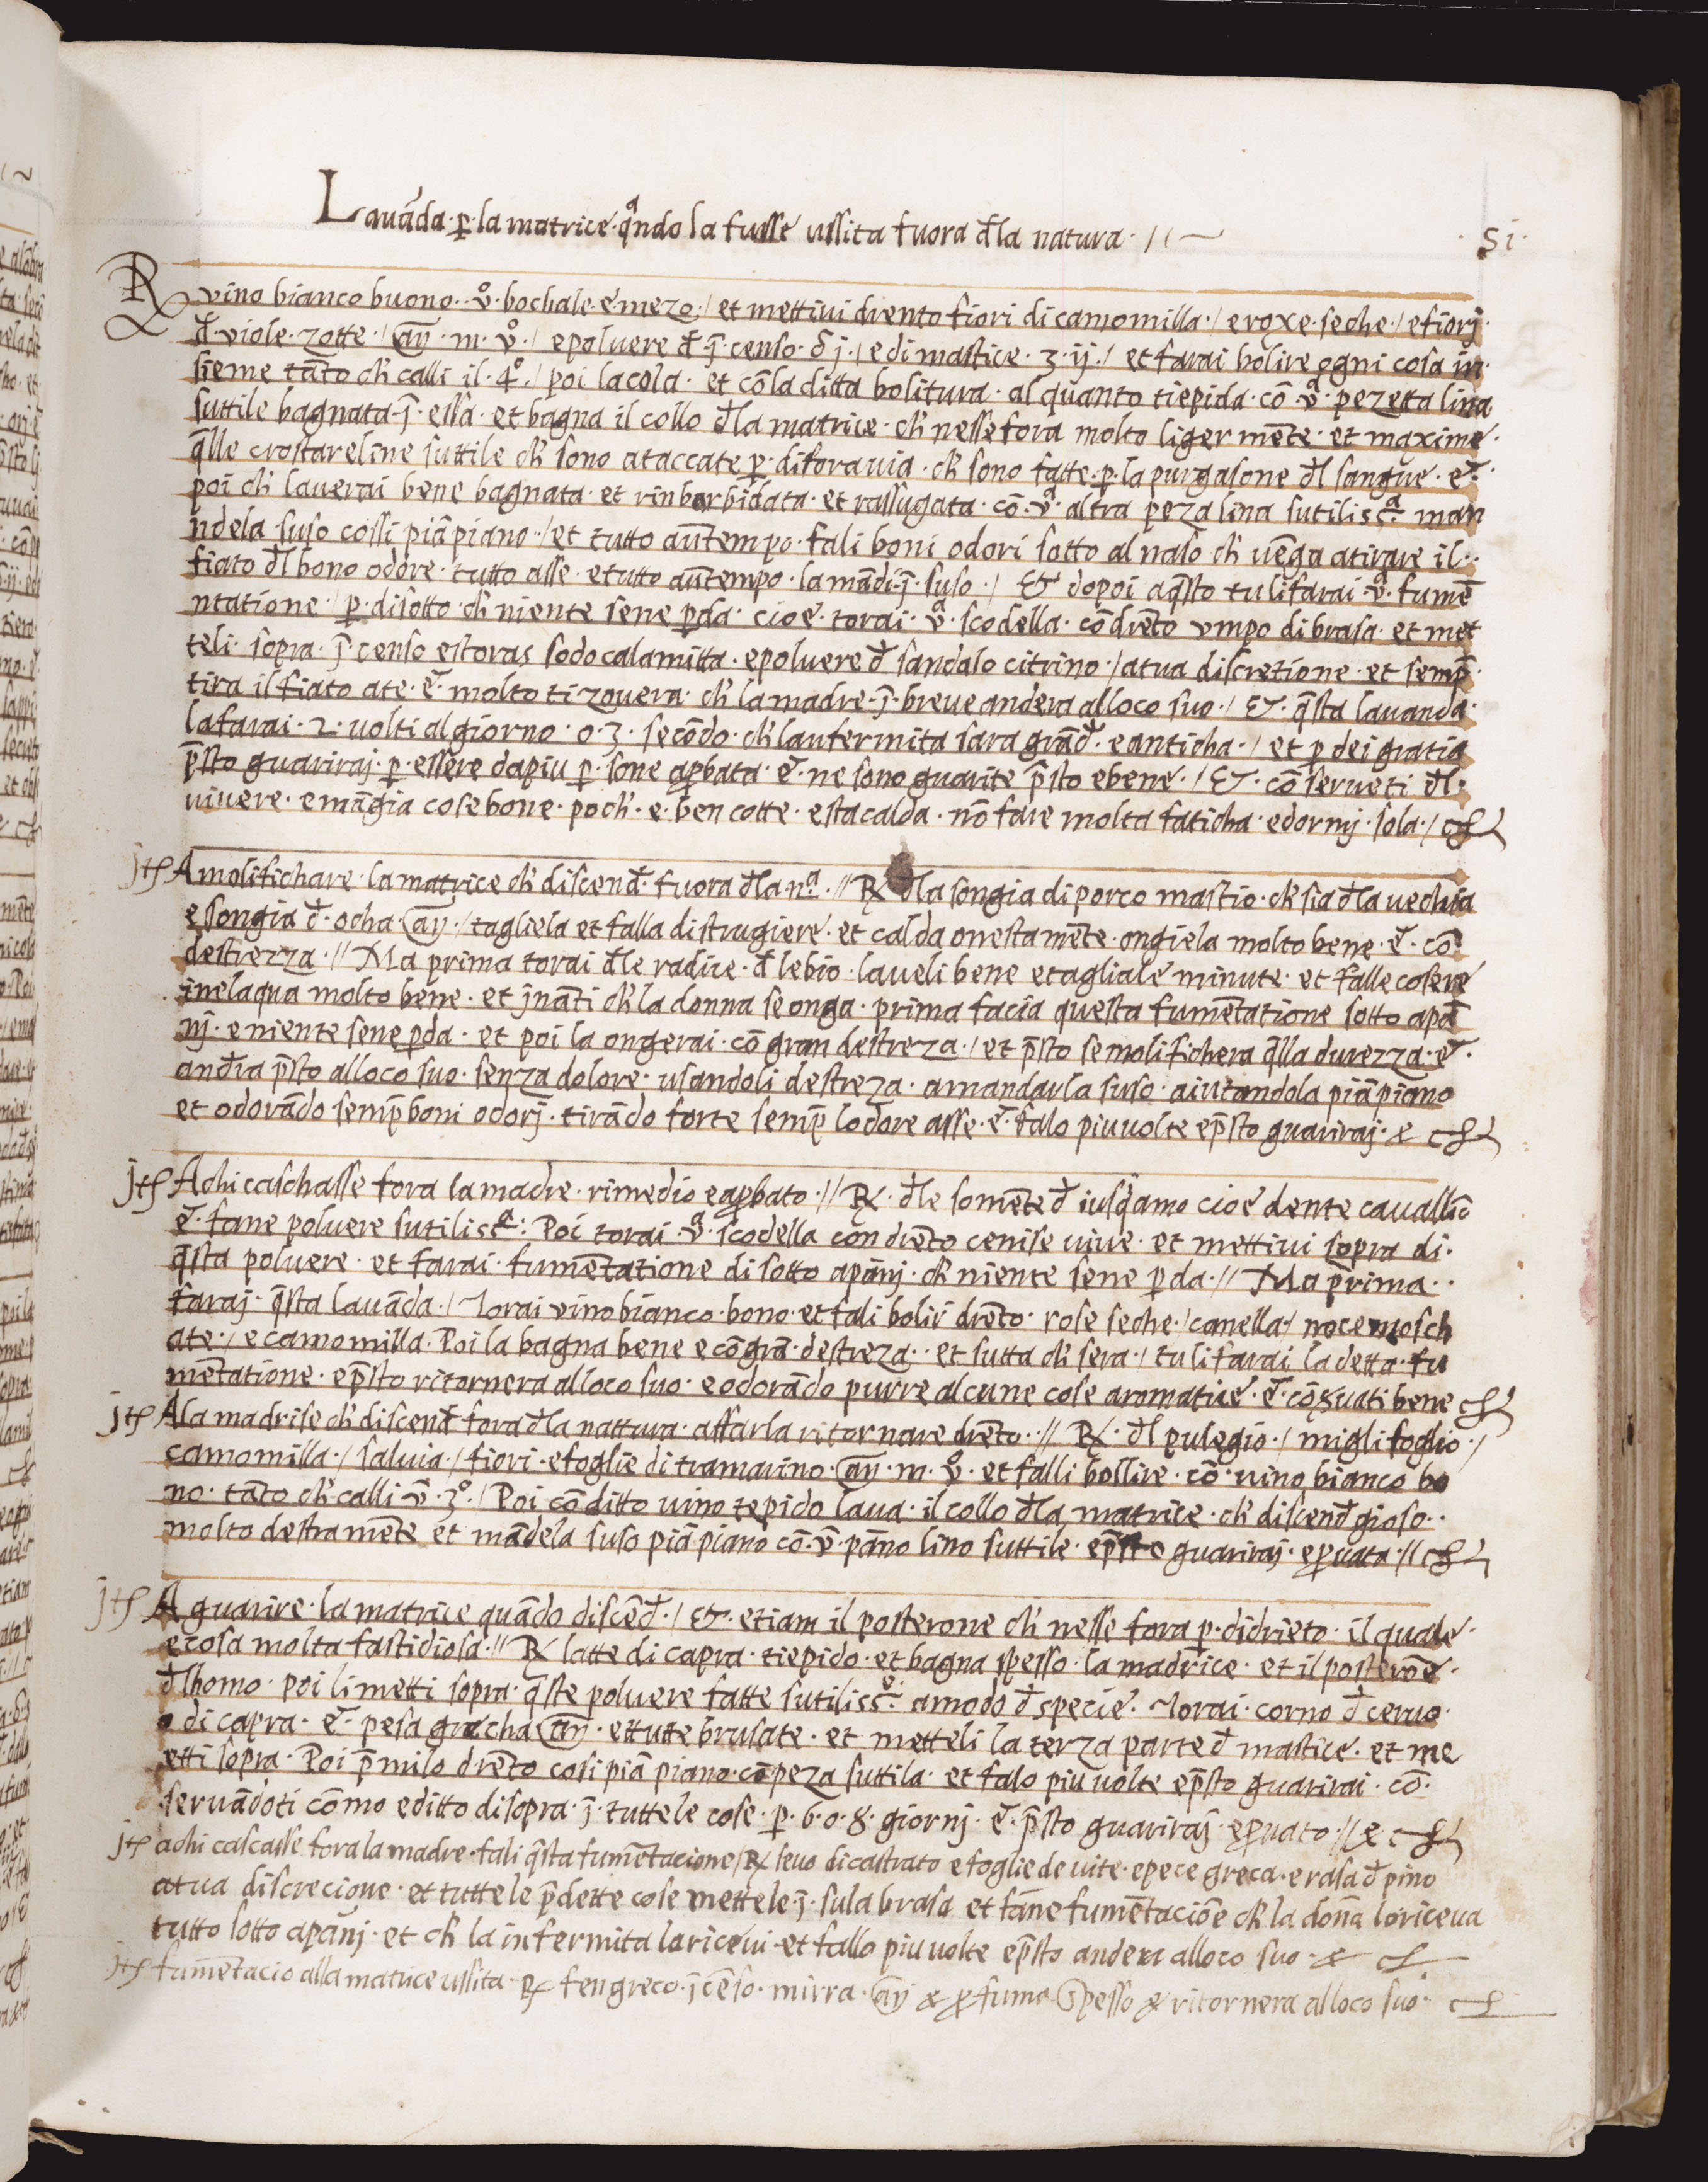 Lauāda · ꝑ · la matrice · qᵃndo la fusse ussita fuora đla natura · / ~
· 51 ·
℞ vino bianco buono · v̊ · bochale · e mezo · / et mettiui drento fiori di camomilla · / e roxe · seche · / e fiorj ·
đ · viole · zotte · / añ · m · v̊ · / e poluere đ j̄ · censo · ʒ j · / e di mastice · ʒ · ij · / et farai bolire ogni cosa in ·
sieme tāto ch' calli il · 4° · / poi la cola · et cō la ditta bolitura · al quanto tiepida · cō · vᵃ · pezetta lina
suttile bagnata · j̄ · essa · et bagna il collo đla matrice · ch' nesse fora molto liger mēte · et maxime ·
q̄lle crostareline suttile ch' sono ataccate ꝑ · difora uia · ch' sono fatte · ꝑ · la purgasone đl sangue · e ·
poi ch' lauerai bene bagnata · et rinborbidata · et rassugata · cō · vᵃ · altra peza lina sutilissᵃ · man
ndela suso cossi piā piano · / et tutto aūtempo · fali boni odori sotto al naso ch' uēga atirare il ·
fiato đl bono odore · tutto asse · e tutto aūtempo · la mādi · j̄ · suso · / Et dopoi a q̄sto tu li farai · vᵃ · fumē
ntatione · / ꝑ · disotto · ch' niente sene ꝑda · cioe · torai · vᵃ · scodella · cō drēto vmpo di brasa · et met
teli · sopra · j̄ · censo e storas sodo calamitta · e poluere đ sandalo citrino · / a tua discretione · et semp̄ ·
tira il fiato a te · e · molto ti zouera · ch' la madre · j̄ · breue andera al loco suo · / Et · q̄sta lauanda ·
la farai · 2 · uolti al giorno · o · 3 · secōdo · ch' lanfermita sara grāđ · e anticha · / et ꝑ dei gratia
p̄sto guariraj · ꝑ · essere da piu ꝑ · sone aꝓbata · e · ne sono guarite p̄sto e bene · / Et · cō serueti đl ·
viuere · e māgia cose bone · poch' · e · ben cotte · e sta calda · nō fare molta faticha · e dormj · sola · /
jtẽ A molifichare · la matrice ch' discenđ · fuora đla nᵃ · // ℞ đla songia di porco mastio · ch' sia đla uechia
e songia đ · ocha añ · / tagliela et falla distrugiere · et calda onestamēte · ongiela molto bene · e · cō ·
destrezza · // Ma prima torai đle radice · đ lebio · laueli bene e tagliale minute · et falle cosere
inelaqua molto bene · et jnāti ch' la donna se onga · prima facia questa fumētatione sotto apā
nj · e niente sene ꝑda · et poi la ongerai · cō gran destreza · / et p̄sto se molifichera q̄lla durezza · e ·
anđra p̄sto al loco suo · senza dolore · usandoli destreza · a mandarla suso · aiutandola piā piano
et odorādo semp̄ boni odorj · tirādo forte semp̄ lodore asse · e · falo piu uolte e p̄sto guariraj · &
jtẽ A chi caschasse fora la madre · rimedio e aꝓbato · // ℞ · đle somēte đ iusq̄amo cioe dente cauallīo
e · fane poluere sutilissᵃ · Poi torai · vᵃ · scodella con drēto cenise uiue · et mettiui sopra di ·
q̄sta poluere · et farai · fumētatione di sotto apānj · ch' niente sene ꝑda · // Ma prima ·
faraj · q̄sta lauāda · / Torai vino bianco · bono · et fali bolir drēto · rose seche · / canella · / noce mosch
ate · / e camomilla · Poi la bagna bene e cō grā · destreza · et sutta ch' sera · / tu li farai la detta · fu
mētatione · e p̄sto ritornera al loco suo · e odorādo purre alcune cose aromatice · e · cōseruati bene
jtẽ A la madrise ch' discenđ fora đla nattura · affarla ritornare drēto · // ℞ · đl pulegio · / miglifoglio · /
camomilla · / saluia · / fiori · e foglie di tramarino · añ · m · v̊ · et falli bollire · cō · uino bianco bo
no · tāto ch' calli v̄ · 3° · / Poi cō ditto uino tepido laua · il collo đla matrice · ch' discenđ gioso ·
molto destramēte et mādela suso piā piano cō · v̄ · pāno lino suttile · e p̄sto guariraj · e ꝓuata · //
jtẽ A guarire · la matrice quādo discēđ · / Et · etiam il posterone ch' nesse fora ꝑ · didrieto · il quale ·
e cosa molta fastidiosa · // ℞ latte di capra · tiepido · et bagna spesso · la madrice · et il posterōe ·
đlhomo · poi li metti sopra · q̄ste poluere fatte sutilissᵉ · a modo đ specie · Torai · corno đ ceruo ·
o di capra · e · pesa gracha añ · et tutte brusate · et metteli la terza parte đ mastice · et me
etti sopra · Poi p̄milo drēto cosi piā piano · cō peza suttila · et falo piu uolte e p̄sto guarirai · cō ·
seruādoti cōmo editto di sopra · j̄ · tutte le cose · ꝑ · 6 · o · 8 · giornj · e · p̄sto guariraj · e ꝓuato · // &
jtẽ a chi cascasse fora la madre · fali q̄sta fumētacione / ℞ seuo di castrato e foglie de uite · e pece greca · e rasa đ pino
a tua discrecione · et tutte le p̄dette cose mettele · j̄ · sula brasa et fāne fumētaciōe ch' la donā lo riceua
tutto sotto apānj · et ch' la infermita lo riceui · et fallo piu uolte e p̄sto andera al loco suo · &
jtẽ fumētacio alla matrice ussita · ℞ fengreco · j̄cēso · mirra · añ & ꝓfuma spesso & ritornera al loco suo ·